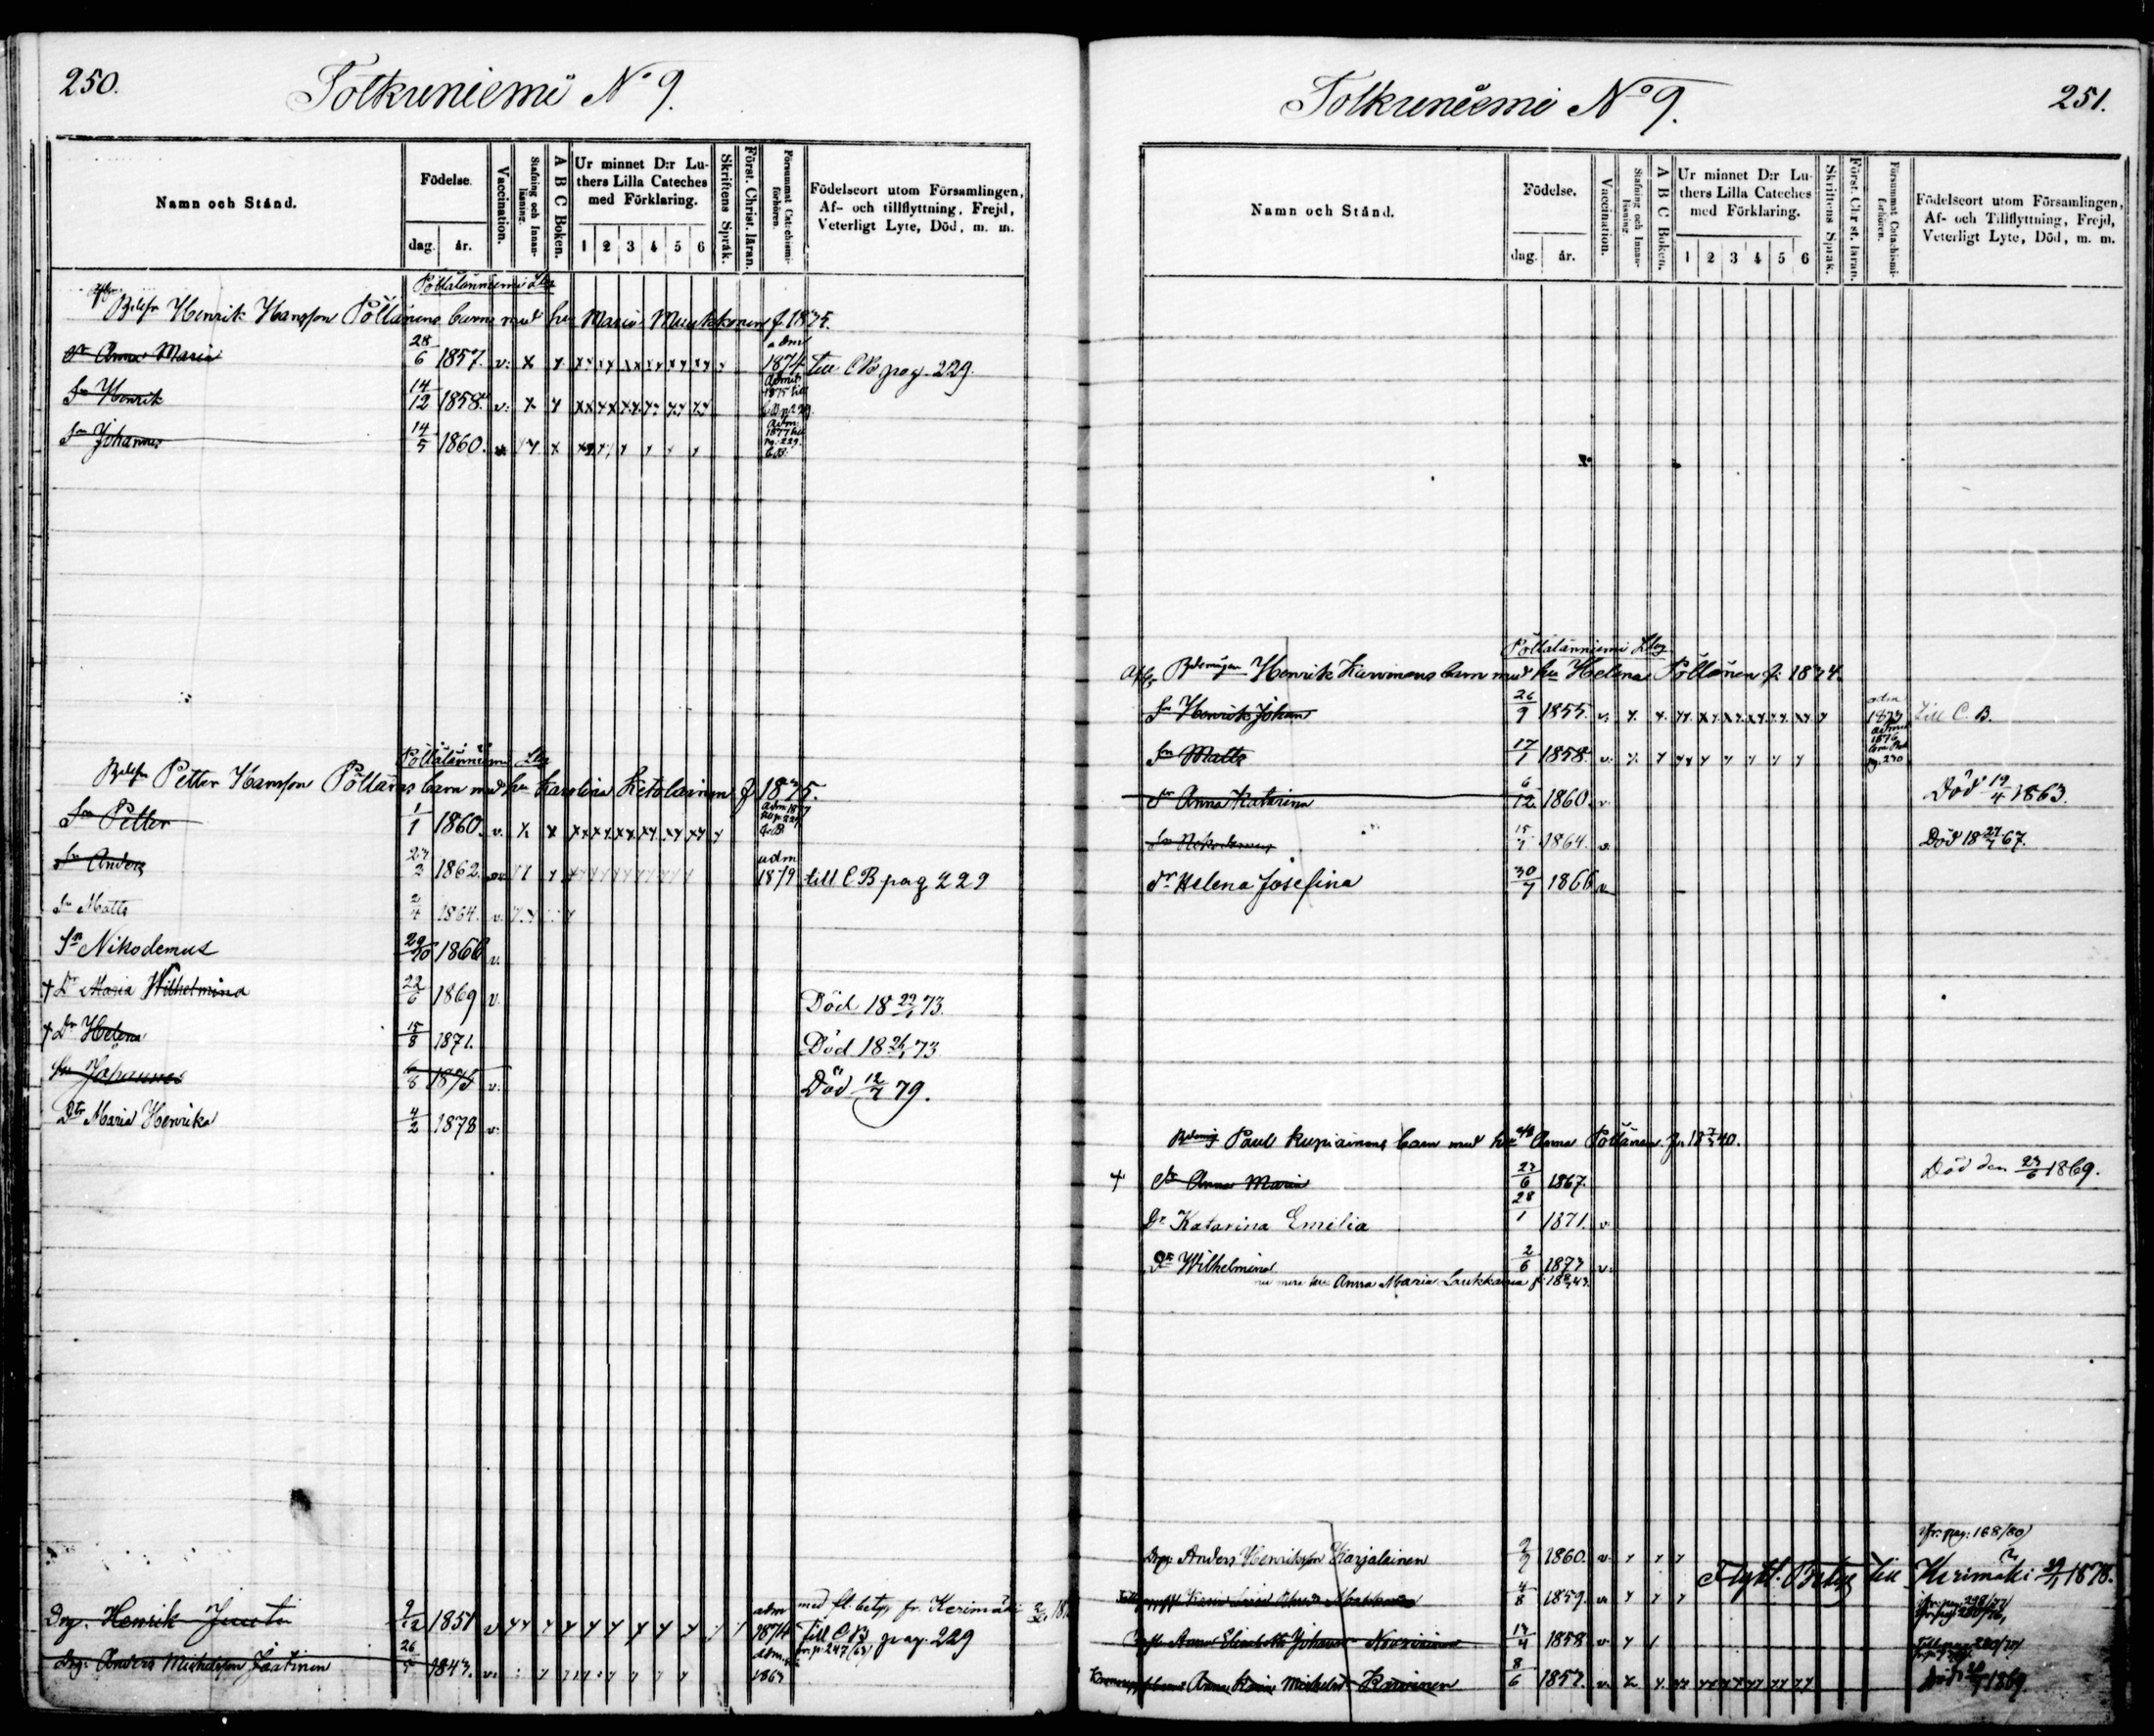 250.
Tolkuniemi No 9.
Namn och Stånd.
Födelse.
dag. år.
Vaccination.
Stafning och Innan-läsning.
A B C Boken.
Ur minnet D:r Lu-
thers Lilla Cateches
med Förklaring.
1 2 3 4 5 6
Skriftens Språk.
Först. Christ. läran.
Försummat Catechismi-förhören.
Födelseort utom Församlingen,
Af- och tillflyttning, Frejd,
Veterligt Lyte, Död, m. m.
Pöllälänniemi Lbg
Henrik Hansson Pöllänens barn med hu Maria Muukkonen f. 1835.
Dr Anna Maria 28/6 1857. v. adm 1874 till CB pag. 229.
Sn Henrik 14/12 1858. v. admit 1875 till CB p 229.
Sn Johannes 14/5 1860. adm. 1877 till pg. 229. CB.
Pöllälänniemi Lbg
Petter Hansson Pölläns barn med hu Karolina Ketolainen f. 1835.
Sn Petter 1/1 1860. v. adm 1877 CB
Sn Anders 1862. adm 1879 till CB pag 229
Sn Matts 2/4 1864. v.
Sn Nikodemus 29/10 1866 v.
† Dr Maria Wilhelmina 22/6 1869 v. Död 18 73.
† Dr Helena 15/8 1871. Död 18 73
Sn Johannes 1875 v. Död 12/7 79.
Dtr Maria Henrika 4/2 1878 v.
Drg. Henrik Juuti 9/12 1851 v adm 1874 med fl. betyg fr. Kerimäki
Till CB pag. 229
Drg. Anders Michelsson Jäätinen 26/5 1843. v. adm. 1863 fr. p. 247 (63)
251.
Tolkuniemi No 9.
Namn och Stånd.
Födelse.
dag. år.
Vaccination.
Stafning och Innan-läsning.
A B C Boken.
Ur minnet D:r Lu-
thers Lilla Cateches
med Förklaring.
1 2 3 4 5 6
Skriftens Språk.
Först. Christ. läran.
Försummat Catechismi-förhören.
Födelseort utom Församlingen,
Af- och Tillflyttning, Frejd,
Veterligt Lyte, Död, m. m.
Pöllälänniemi Lbg
Henrik Karvinens barn med hu Helena Pöllänen f. 1834.
Sn Henrik Johan 26/9 1855. v. adm 1873 Till C. B.
Sn Matts 17/1 1858. v. admit 1876 pg. 230
Dr Anna Katarina 6/12 1860. v. Död 19/4 1863.
Sn Nikodemus 1864. v. Död 18 67.
Dr Helena Josefina 30/7 1866 v
Paul Kupiainens barn med hu Anna Pöllänen. f. 18 40.
† Dr Anna Maria 1867. Död den 23/6 1869.
Dr Katarina Emilia 28/1 1871. v.
Dr Wilhelmina 2/6 1873 v.
Anna Maria Laukkanen f. 18 43.
fr. pag: 168/80)
Drg. Anders Henriksson Karjalainen 1860. v. Flytt. Betyg till Kerimäki 1878.
4/8 1859. v.
Anna Elisabeth Johans 1858 v.
Anna Michelsd Karvinen 8/6 1857. v. Död 1869.